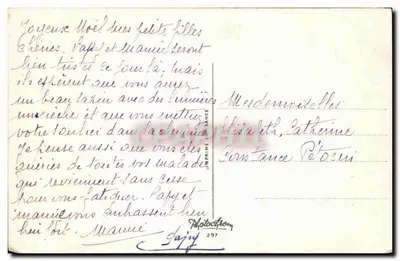 Joyeux Noël mes petites filles
chéries. Papy et Mamie seront
bien tristes ce jour là, mais
ils espèrent que vous aurez
un beau sapin avec des lumières
une crèche et que vous mettrez
votre soulier dans la
heureuse aussi que vous êtes
guéries de toutes vos maladies
qui reviennent sans cesse
pour vous fatiguer. Papy et
mamie vous embrassent bien
bien fort. Mamie
Papy
Mesdemoiselles
Elisabeth, Catherine
Constance
IMPRIMÉ EN FRANCE
Photochrom
297